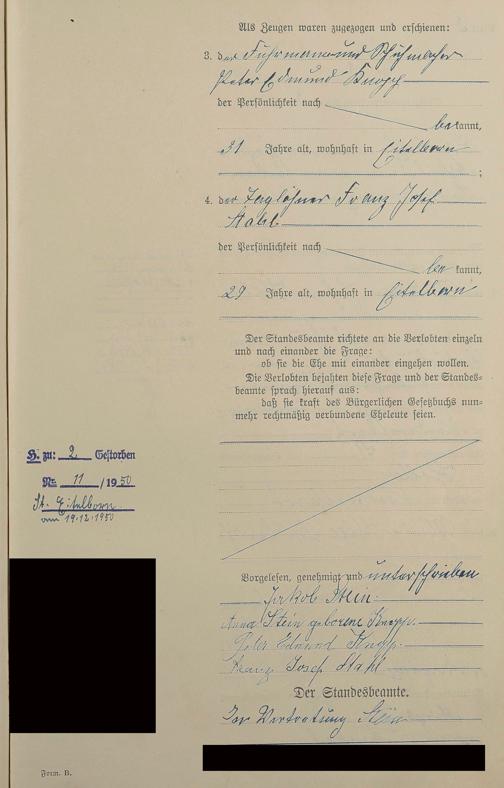 Als Zeugen waren zugezogen und erschienen:
3. der Fuhrmann und Schuhmacher
Peter Edmund Knopp
der Persönlichkeit nach
bekannt,
31 Jahre alt, wohnhaft in Eitelborn
;
4. der Taglöhner Franz Josef
Stahl
der Persönlichkeit nach
bekannt,
29 Jahre alt, wohnhaft in Eitelborn
Der Standesbeamte richtete an die Verlobten einzeln
und nach einander die Frage:
ob sie die Ehe mit einander eingehen wollen.
Die Verlobten bejahten diese Frage und der Standes-
beamte sprach hierauf aus:
daß sie kraft des Bürgerlichen Gesetzbuchs nun-
mehr rechtmäßig verbundene Eheleute seien.
H. zu: 2 Gestorben
Nr. 11 / 1950
St. Eitelborn
am 19.12.1950
Vorgelesen, genehmigt und unterschrieben
Jakob Stein.
Anna Stein geborene Knopp.
Peter Edmund Knopp.
Franz Josef Stahl
Der Standesbeamte.
In Vertretung
Form. B.